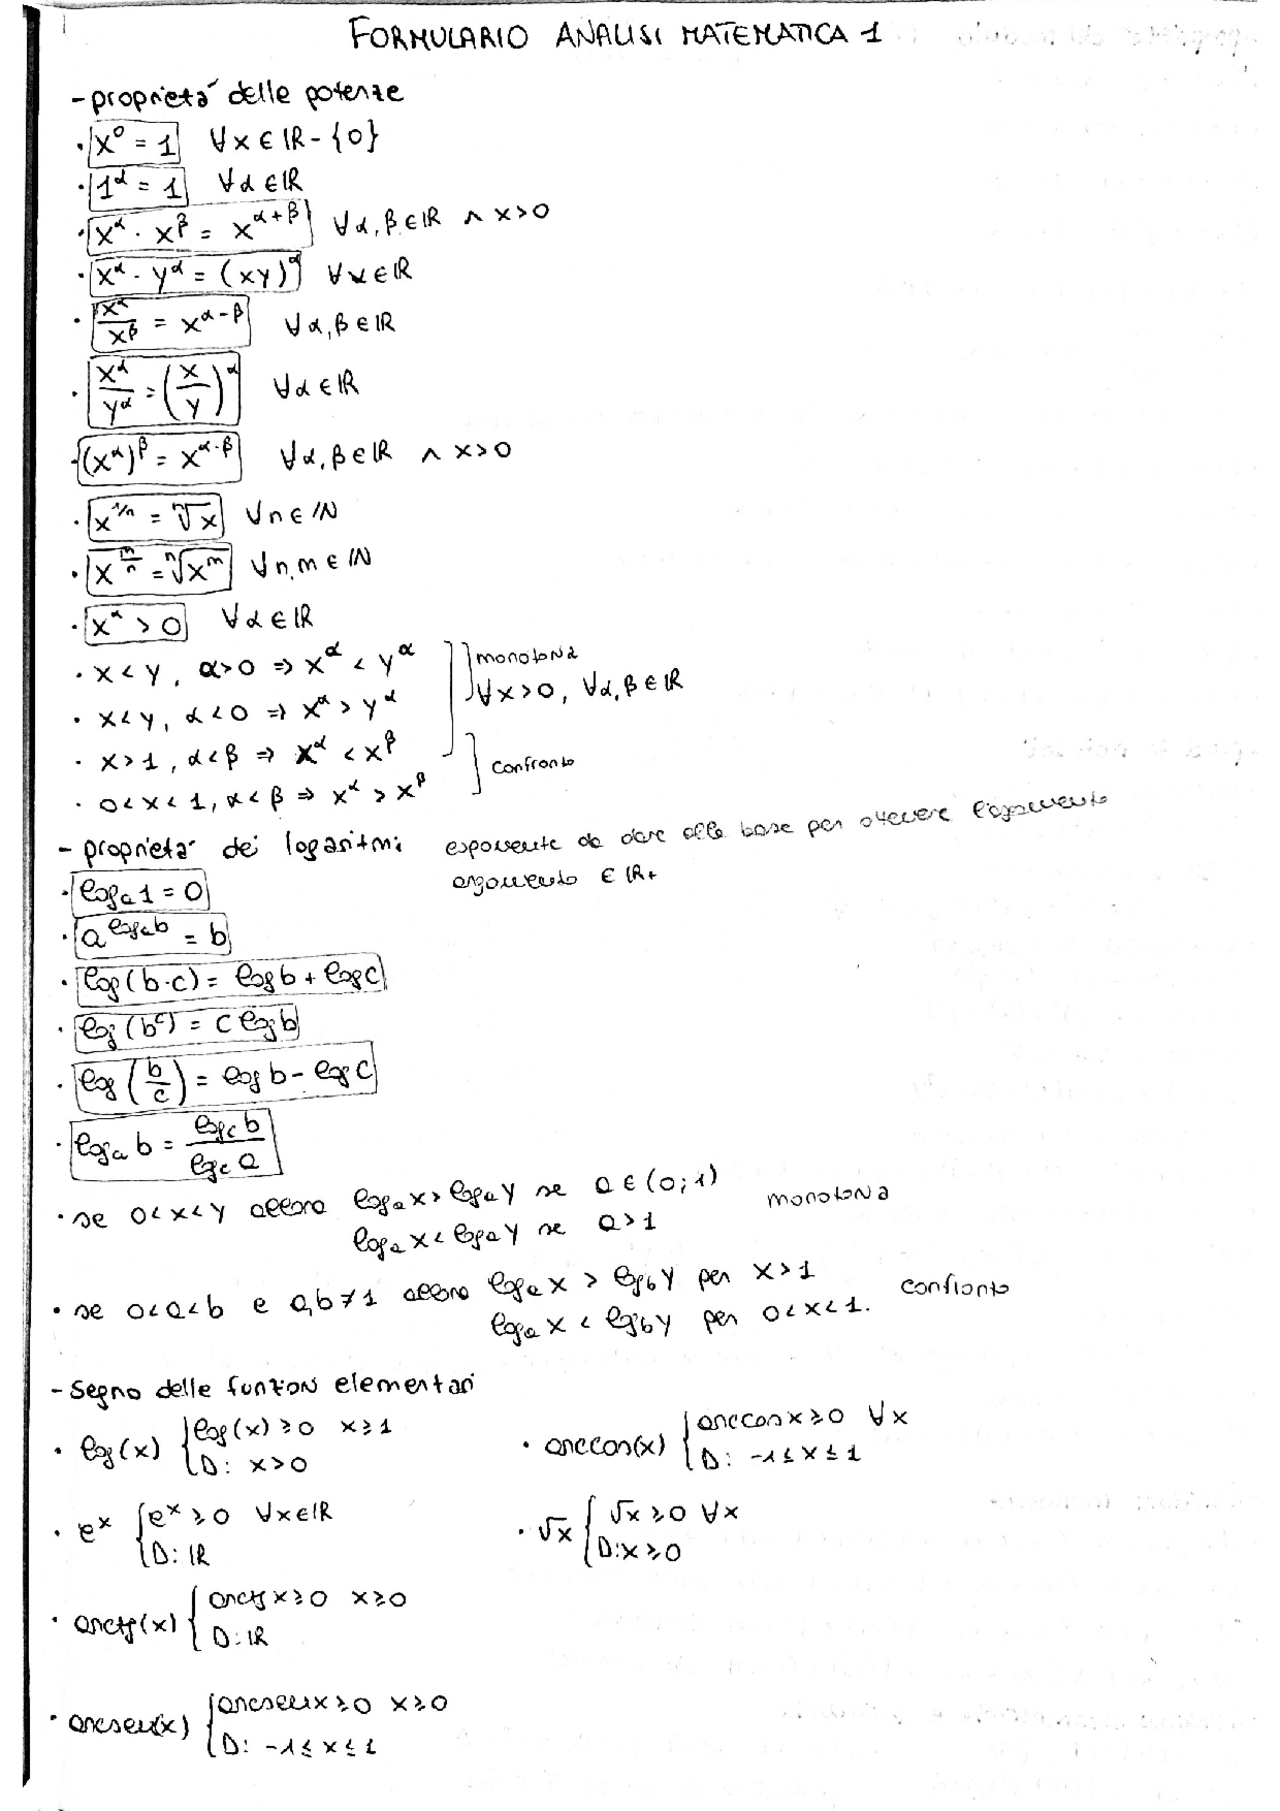 FORMULARIO ANALISI MATEMATICA 1
- proprietá delle potenze
· x⁰ = 1 ∀x ∈ ℝ - {0}
· 1^α = 1 ∀α ∈ ℝ
· x^α · x^β = x^(α+β) ∀α, β ∈ ℝ ∧ x>0
· x^α · y^α = (xy)^α ∀α ∈ ℝ
· x^α/x^β = x^(α-β) ∀α, β ∈ ℝ
· x^α/y^α = (x/y)^α ∀α ∈ ℝ
· (x^α)^β = x^(α·β) ∀α, β ∈ ℝ ∧ x>0
· x^(1/n) = ⁿ√x ∀n ∈ ℕ
· x^(m/n) = ⁿ√(x^m) ∀n, m ∈ ℕ
· x^α > 0 ∀α ∈ ℝ
· x < y, α>0 ⇒ x^α < y^α monotonia
· x<y, α<0 ⇒ x^α > y^α ∀x>0, ∀α, β ∈ ℝ
· x>1, α<β ⇒ x^α < x^β confronto
· 0<x<1, α<β ⇒ x^α > x^β
- proprietá dei logaritmi esponente da dare alla base per ottenere l'argomento
argomento ∈ ℝ+
· log_a 1 = 0
· a^(log_a b) = b
· log(b·c) = log b + log c
· log(b^c) = c log b
· log(b/c) = log b - log c
· log_a b = log_c b / log_c a
· se 0<x<y allora log_a x > log_a y se a ∈ (0;1) monotonia
log_a x < log_a y se a>1
· se 0<a<b e a,b≠1 allora log_a x > log_b y per x>1 confronto
log_a x < log_b y per 0<x<1.
- Segno delle funzioni elementari
· log(x) { log(x) ≥ 0 x ≥ 1
D: x>0
· arccos(x) { arccos x ≥ 0 ∀x
D: -1 ≤ x ≤ 1
· e^x { e^x ≥ 0 ∀x∈ℝ
D: ℝ
· √x { √x ≥ 0 ∀x
D: x ≥ 0
· arctg(x) { arctg x ≥ 0 x ≥ 0
D: ℝ
· arcsen(x) { arcsen x ≥ 0 x ≥ 0
D: -1 ≤ x ≤ 1